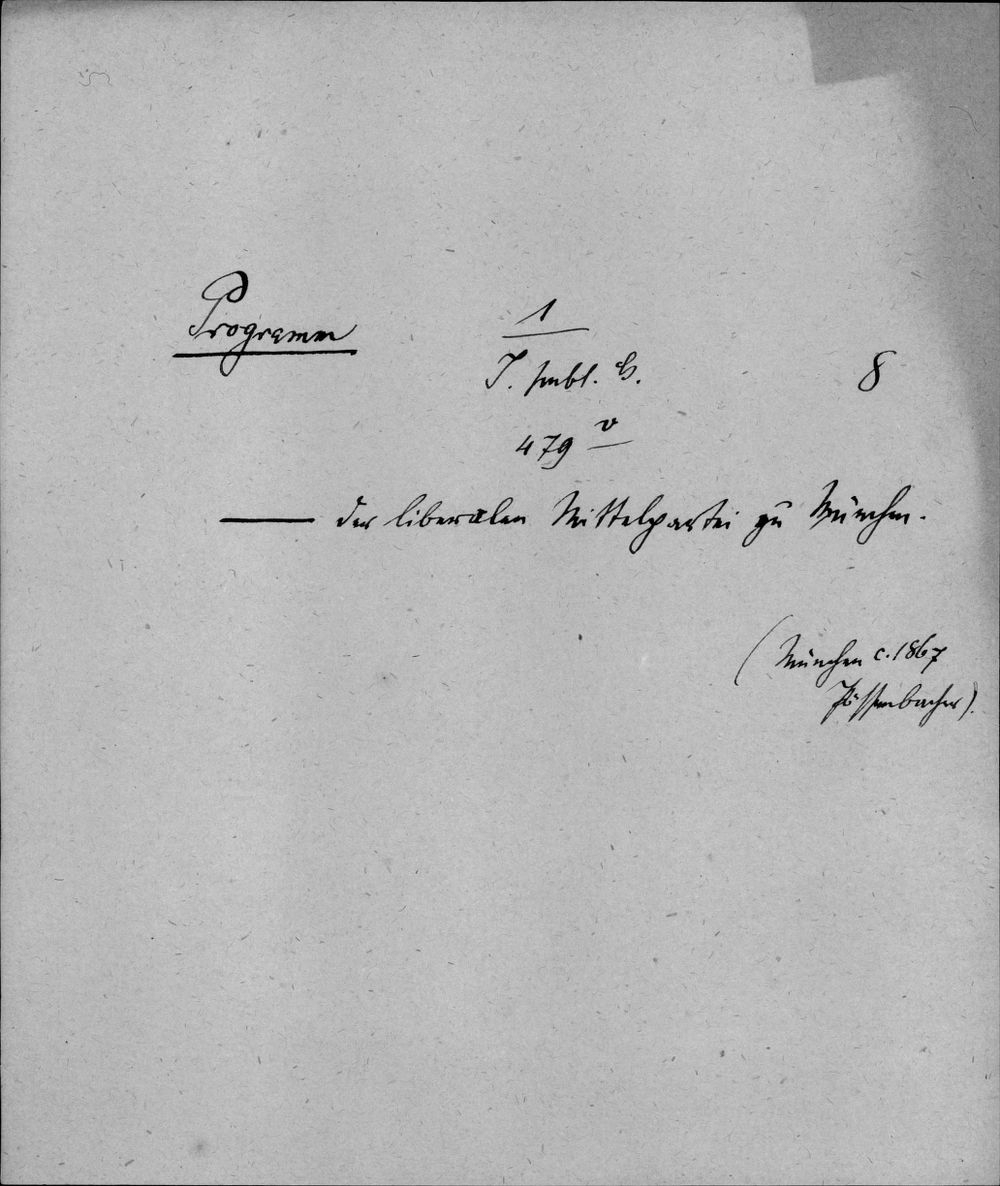 Programm
1
J. publ. G. 8
479 v
— der liberalen Mittelpartei zu München.
(München c. 1867
Pössenbacher).